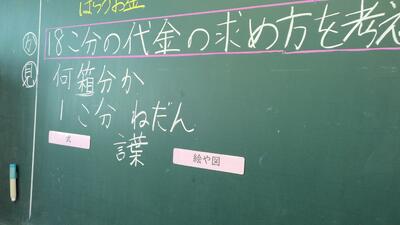 はらうお金
18こ分の代金の求め方を考え
見
何箱分か
1こ分 ねだん
式
言葉
絵や図